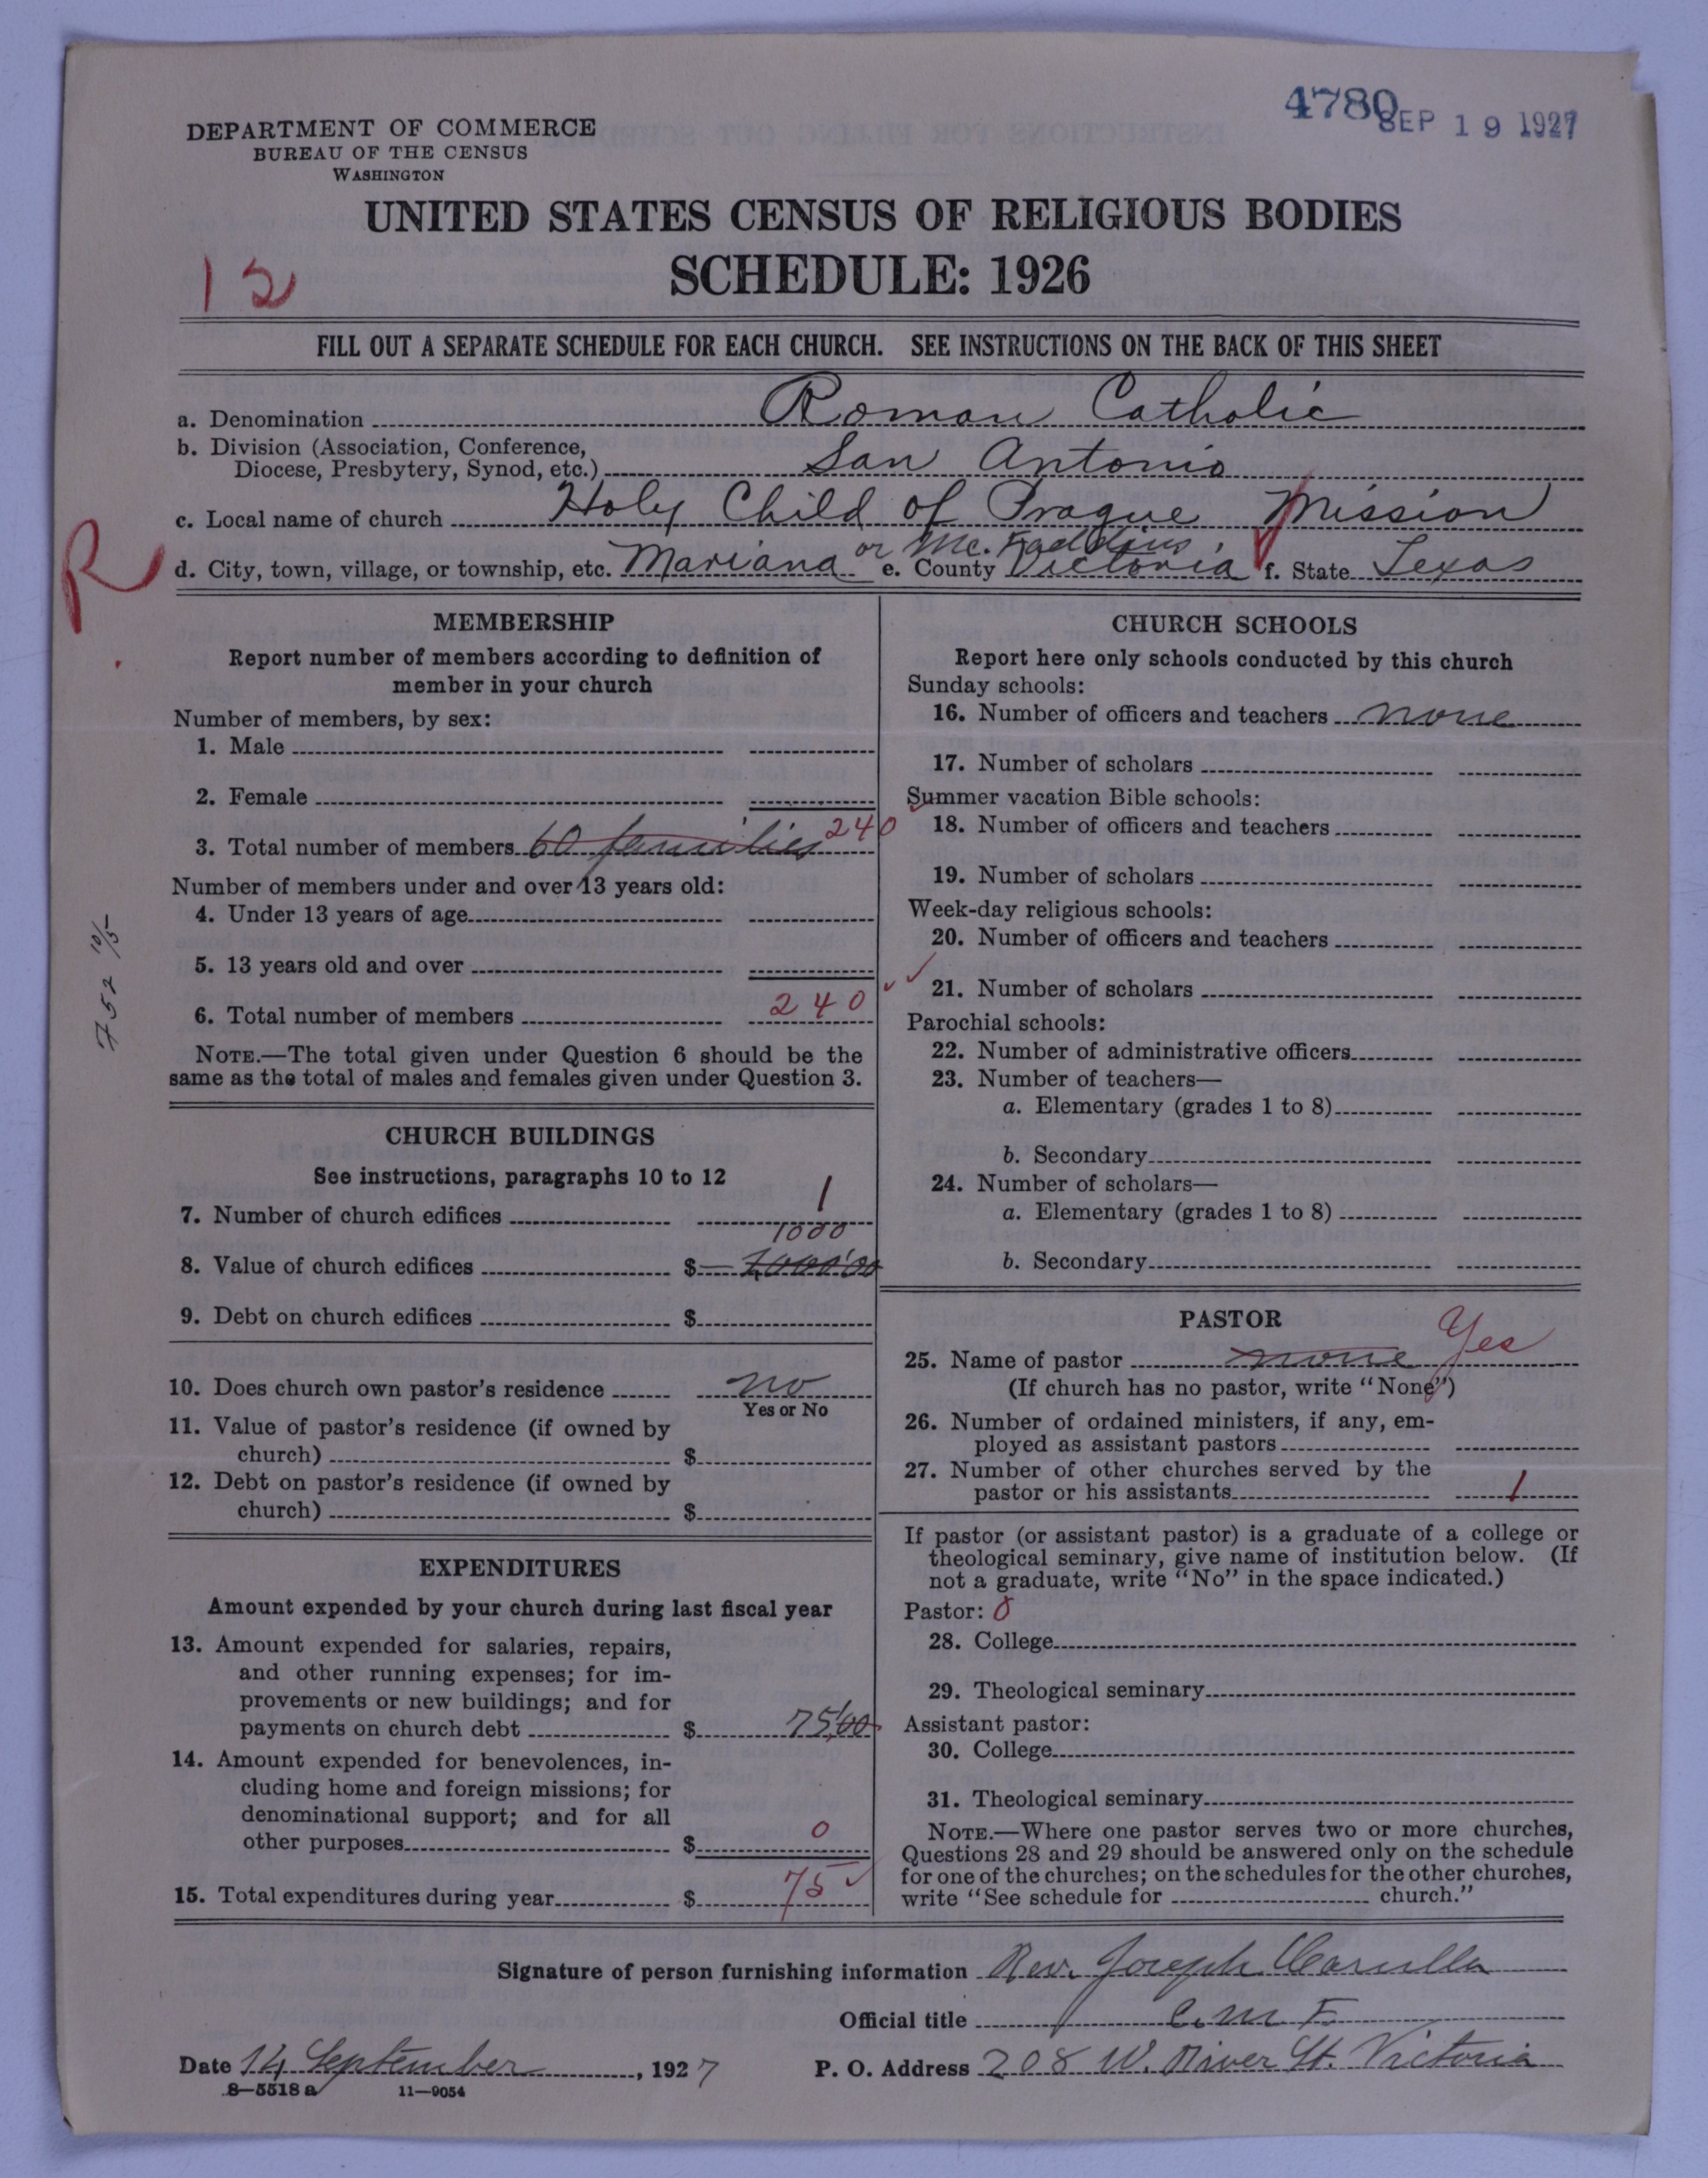 4780
SEP 19 1927
DEPARTMENT OF COMMERCE
BUREAU OF THE CENSUS
WASHINGTON
UNITED STATES CENSUS OF RELIGIOUS BODIES
SCHEDULE: 1926
12
FILL OUT A SEPARATE SCHEDULE FOR EACH CHURCH. SEE INSTRUCTIONS ON THE BACK OF THIS SHEET
a. Denomination Roman Catholic
b. Division (Association, Conference,
Diocese, Presbytery, Synod, etc.) San Antonio
c. Local name of church Holy Child of Prague Mission
R
or Mc. Faddins,
d. City, town, village, or township, etc. Mariana e. County Victoria f. State Texas
MEMBERSHIP
Report number of members according to definition of
member in your church
Number of members, by sex:
1. Male
2. Female
3. Total number of members 60 families 240
Number of members under and over 13 years old:
4. Under 13 years of age
5. 13 years old and over
6. Total number of members 240
NOTE.—The total given under Question 6 should be the
same as the total of males and females given under Question 3.
752 10/5
CHURCH BUILDINGS
See instructions, paragraphs 10 to 12
7. Number of church edifices 1
1000
8. Value of church edifices $ 1000.00
9. Debt on church edifices $
10. Does church own pastor's residence no
Yes or No
11. Value of pastor's residence (if owned by
church) $
12. Debt on pastor's residence (if owned by
church) $
EXPENDITURES
Amount expended by your church during last fiscal year
13. Amount expended for salaries, repairs,
and other running expenses; for im-
provements or new buildings; and for
payments on church debt $ 75.00
14. Amount expended for benevolences, in-
cluding home and foreign missions; for
denominational support; and for all
other purposes $ 0
15. Total expenditures during year $ 75
CHURCH SCHOOLS
Report here only schools conducted by this church
Sunday schools:
16. Number of officers and teachers none
17. Number of scholars
Summer vacation Bible schools:
18. Number of officers and teachers
19. Number of scholars
Week-day religious schools:
20. Number of officers and teachers
21. Number of scholars
Parochial schools:
22. Number of administrative officers
23. Number of teachers—
a. Elementary (grades 1 to 8)
b. Secondary
24. Number of scholars—
a. Elementary (grades 1 to 8)
b. Secondary
PASTOR
25. Name of pastor none Yes
(If church has no pastor, write "None")
26. Number of ordained ministers, if any, em-
ployed as assistant pastors
27. Number of other churches served by the
pastor or his assistants 1
If pastor (or assistant pastor) is a graduate of a college or
theological seminary, give name of institution below. (If
not a graduate, write "No" in the space indicated.)
Pastor: 0
28. College
29. Theological seminary
Assistant pastor:
30. College
31. Theological seminary
NOTE.—Where one pastor serves two or more churches,
Questions 28 and 29 should be answered only on the schedule
for one of the churches; on the schedules for the other churches,
write "See schedule for church."
Signature of person furnishing information Rev. Joseph Carulla
Official title C.M.F.
Date 14 September, 1927 P. O. Address 208 W. River St. Victoria
8—5518 a 11—9054